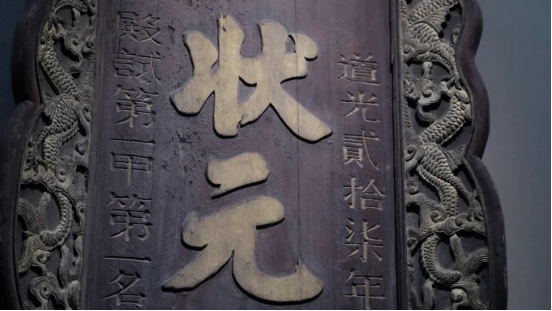 道光貳拾柒年
狀元
殿試第一甲第一名